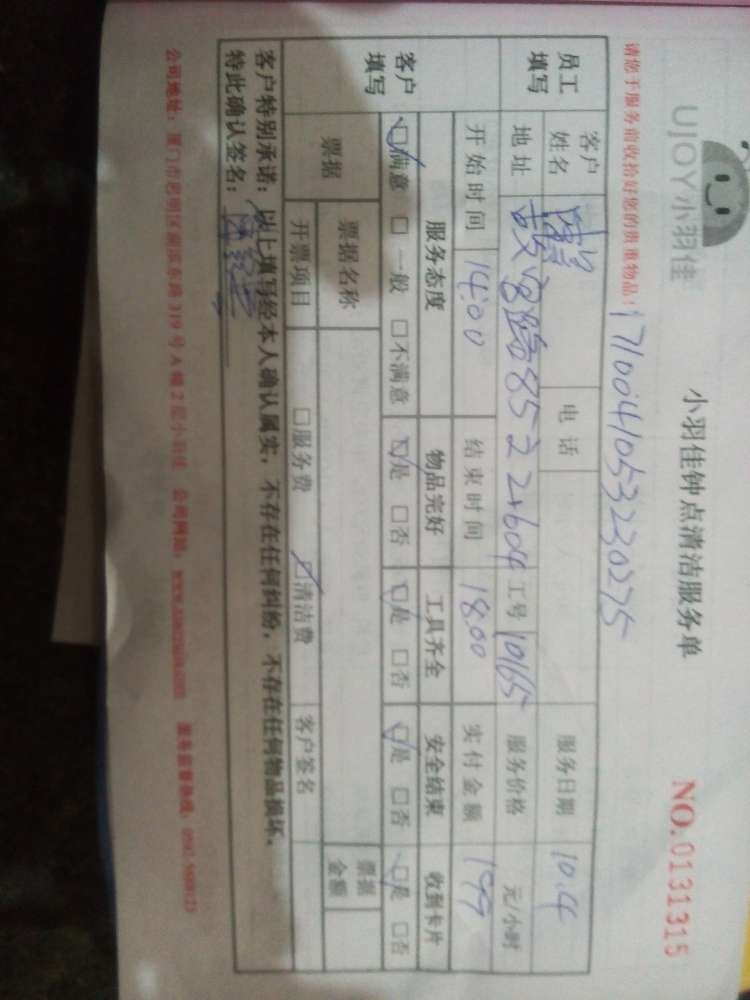 UJOY小羽佳
小羽佳钟点清洁服务单
NO.0131315
请您于服务前收拾好您的贵重物品！
1710041053230275
员工填写 客户姓名 电话 服务日期 10.4
地址 852 2604 工号 10165 服务价格 元/小时
开始时间 14:00 结束时间 18:00 实付金额 199
客户填写 服务态度 物品完好 工具齐全 安全结束 收到卡片
☑满意 □一般 □不满意 ☑是 □否 ☑是 □否 ☑是 □否 ☑是 □否
票据 票据名称 票据金额
开票项目 □服务费 ☑清洁费 客户签名
客户特别承诺：以上填写经本人确认属实，不存在任何纠纷，不存在任何物品损坏，
特此确认签名：
公司地址：厦门市思明区 319号A幢2层小羽佳 公司网站： 服务监督热线：